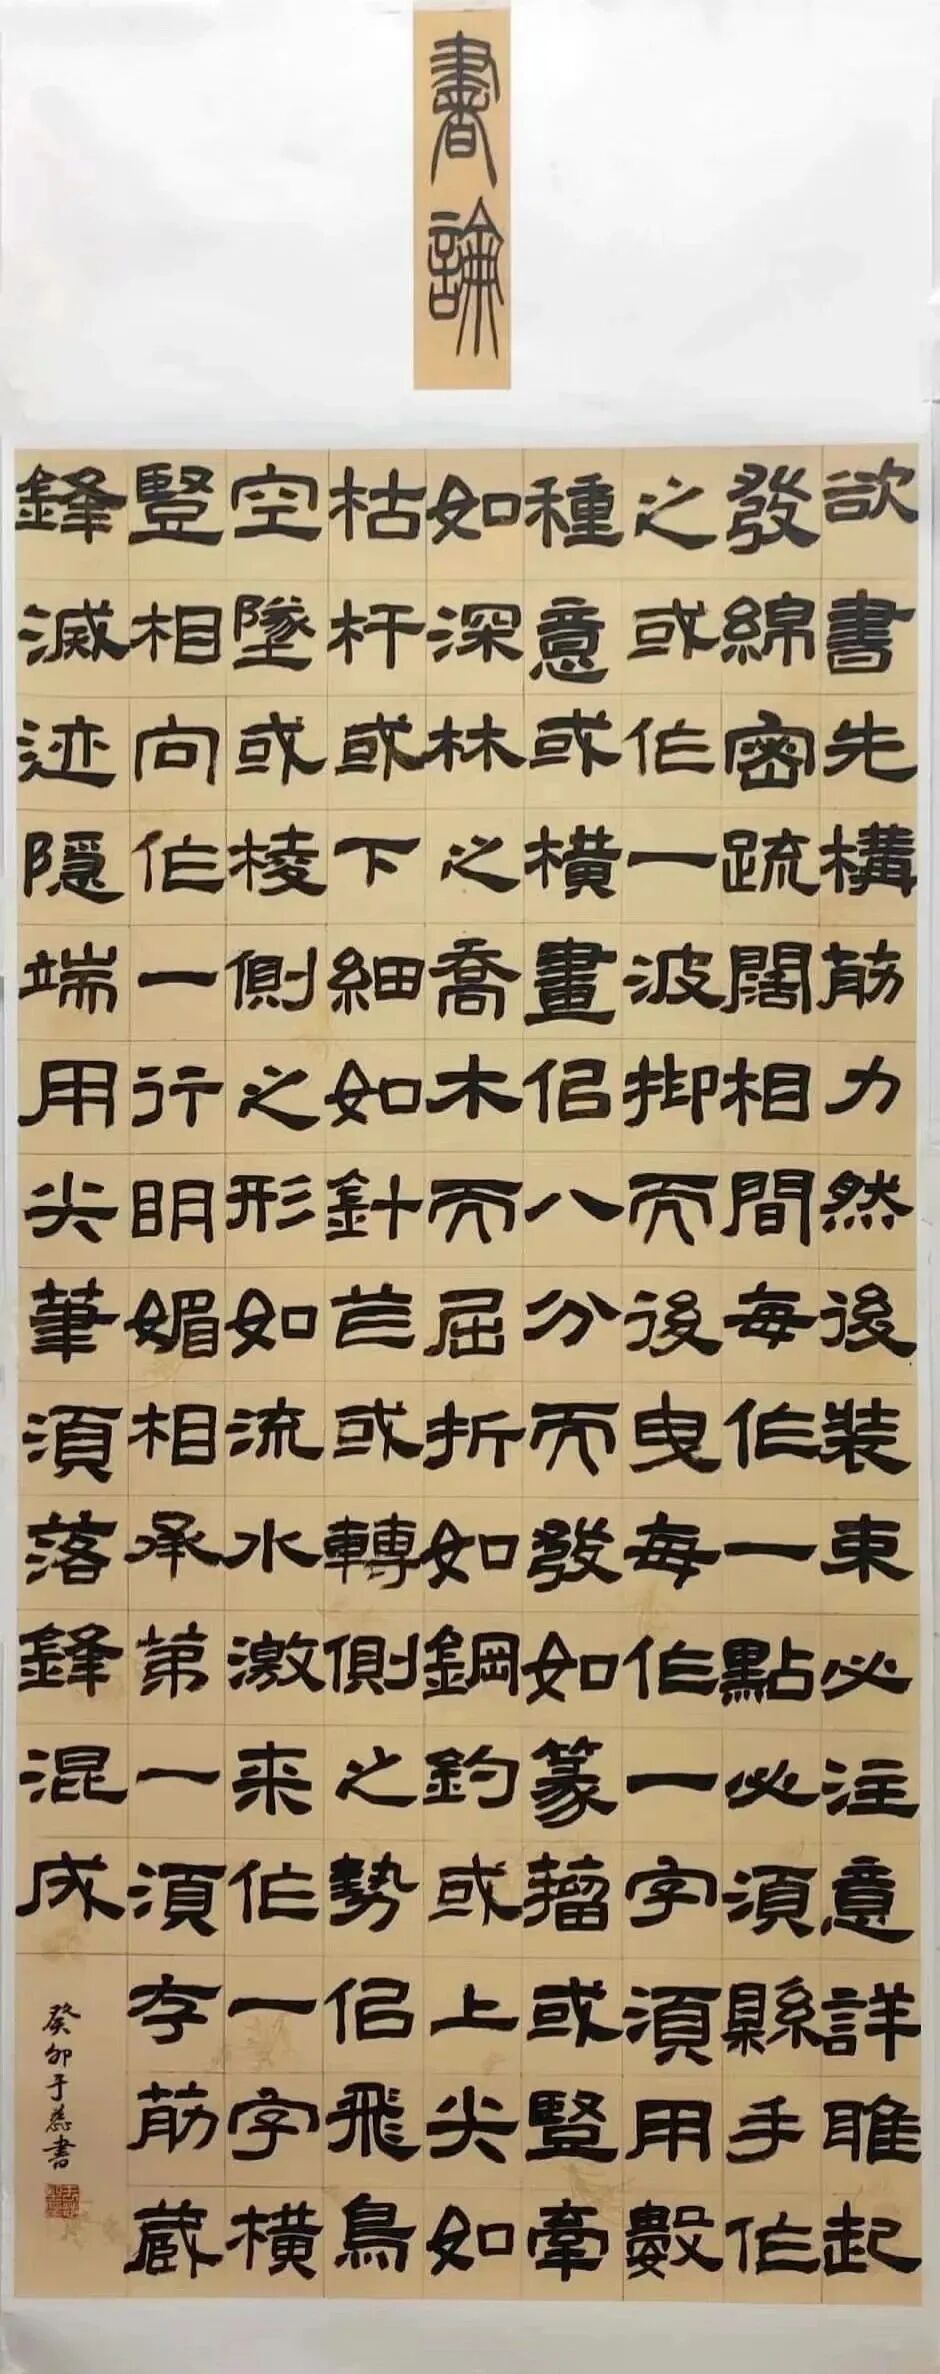 書論
欲書先構筋力然後裝束必注意詳雎起
發綿密疏闊相間每作一點必須縣手作
之或作一波抑而後曳每作一字須用數
種意或橫畫佀八分而發如篆籀或豎牽
如深林之喬木而屈折如鋼鈎或上尖如
枯杆或下細如針芒或轉側之勢佀飛鳥
空墜或棱側之形如流水激来作一字橫
豎相向作一行明媚相承第一須存筋蔵
鋒滅迹隱端用尖筆須落鋒混成
癸卯于蕊書